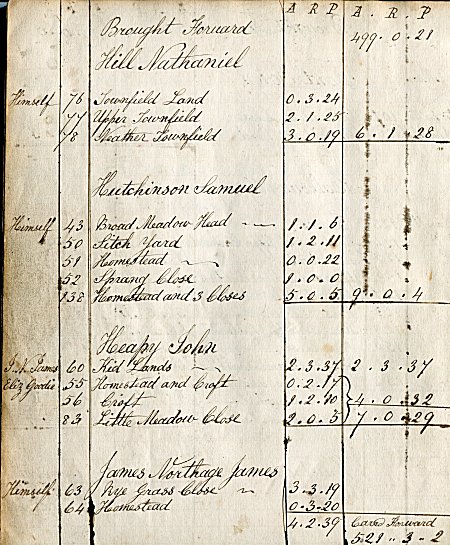 A R P A. R. P
Brought Forward 499.0.21
Hill Nathaniel
Himself 76 Townfield Land 0.3.24
77 Upper Townfield 2.1.25
78 Neather Townfield 3.0.19 6.1.28
Hutchinson Samuel
Himself 43 Broad Meadow Head 1.1.6
50 Fitch Yard 1.2.11
51 Homestead 0.0.22
52 Sprang Close 1.0.0
138 Homestead and 3 Closes 5.0.5 9.0.4
Heapy John
James 60 Kid Lands 2.3.37 2.3.37
Eliz Goodie 55 Homestead and Croft 0.2.17
56 Croft 1.2.10 4.0.32
83 Little Meadow Close 2.0.5 7.0.29
James Northage James
Himself 63 Rye Grass Close 3.3.19
64 Homestead 0.3.20
4.2.39 Carrd Forward
521.3.2